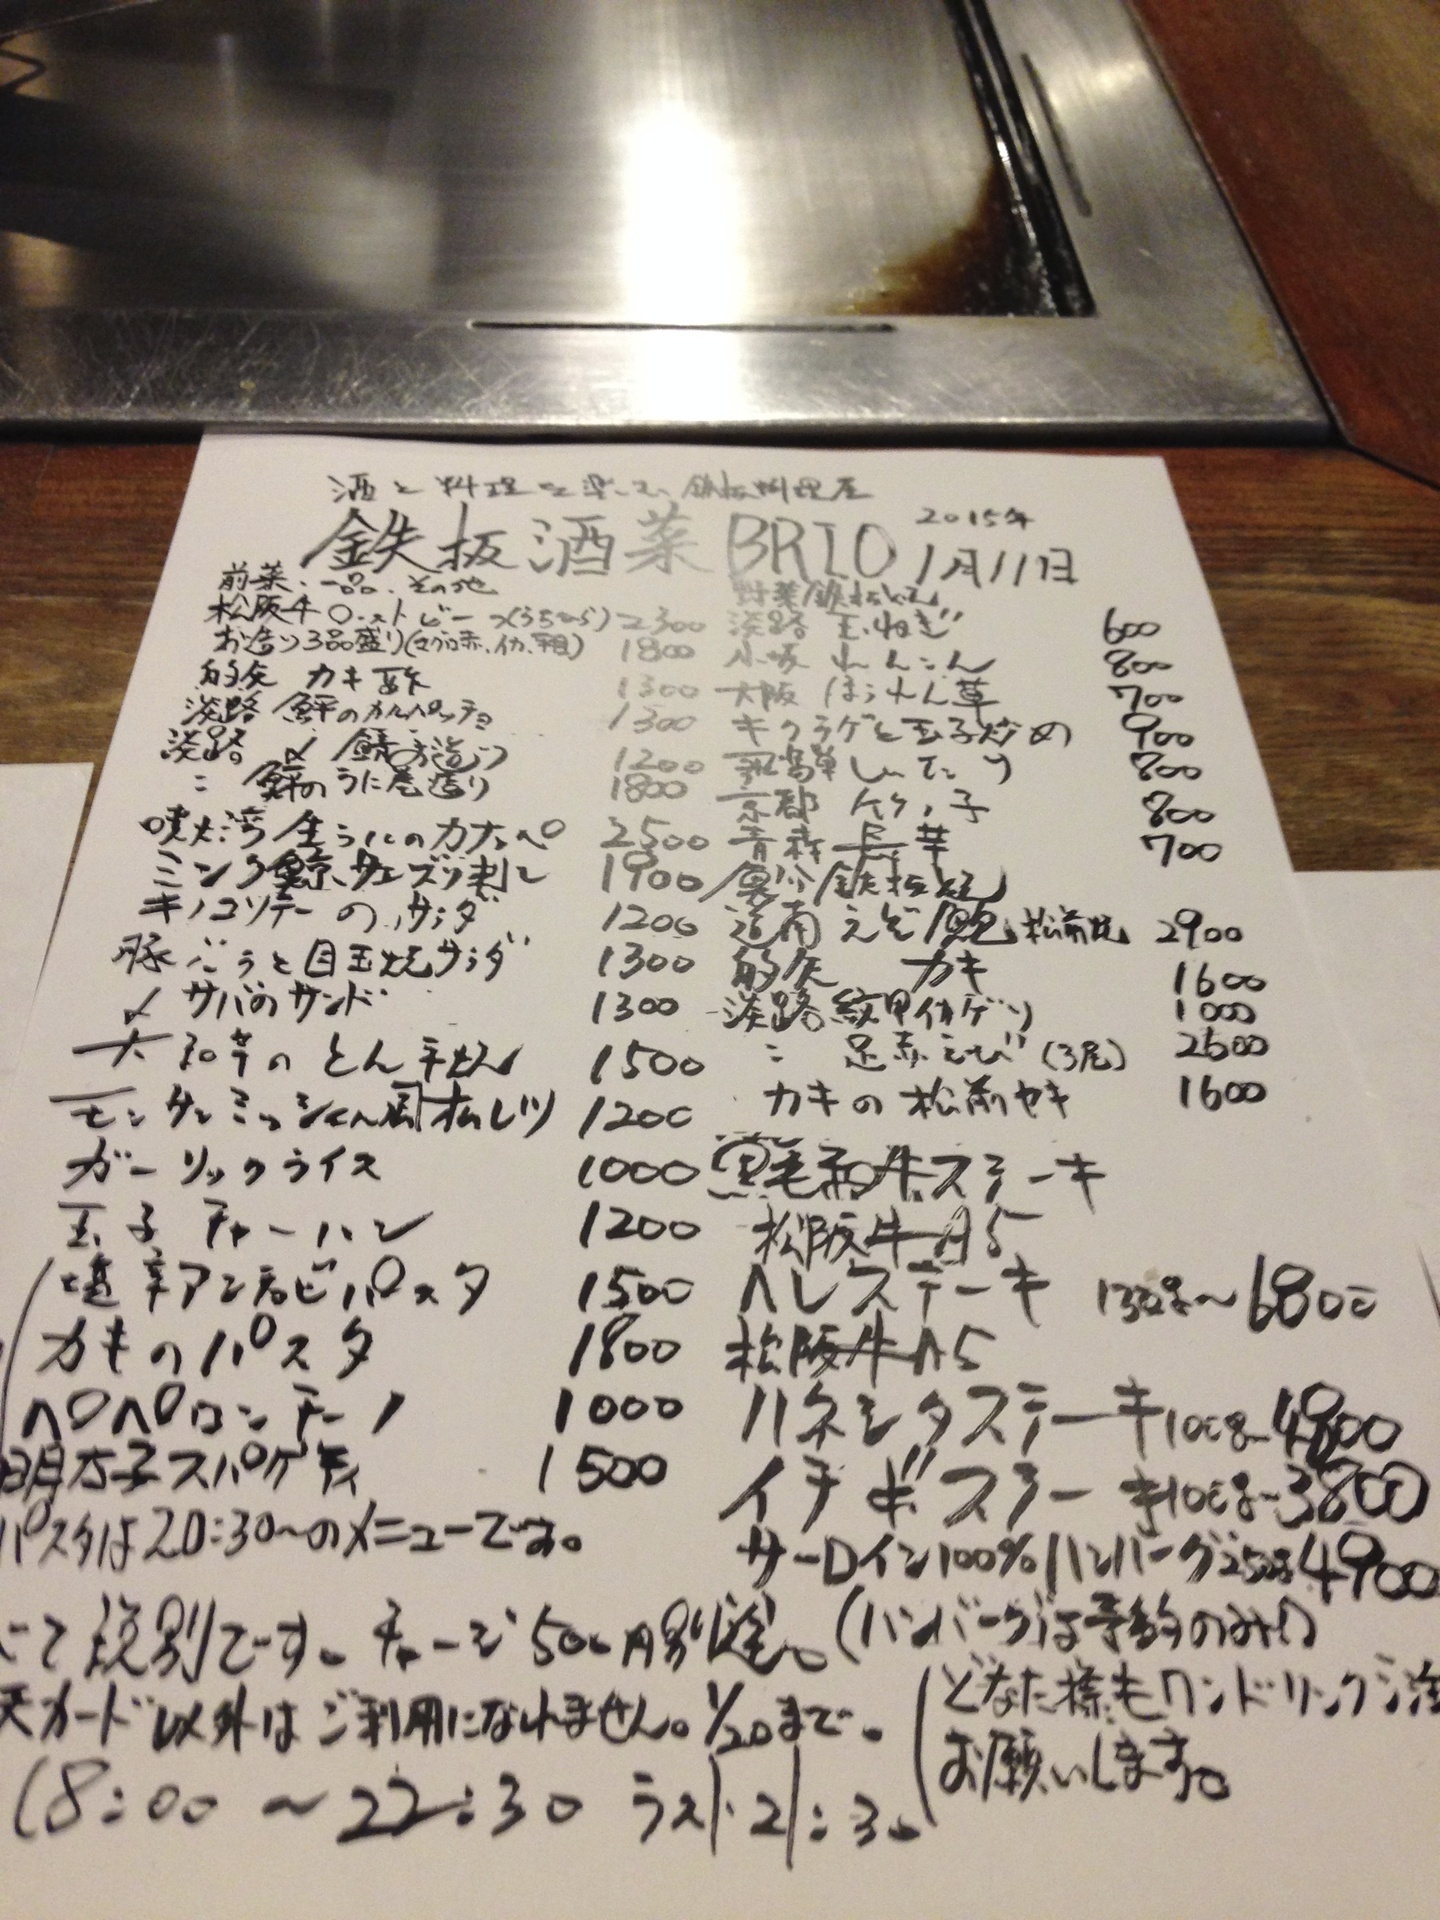 酒と料理を楽しむ、鉄板料理屋
鉄板酒菜 BRIO 2015年 1月11日
前菜・一品・その他
松阪牛ローストビーフ(うちもも) 2300
お造り3品盛り(マグロ赤、イカ、平目) 1800
的矢 カキ酢 1300
淡路 鮃のカルパッチョ 1300
淡路 〆鯖お造り 1200
〃 鮃のうに巻造り 1800
生うにのカナッペ 2500
ミンク鯨、サエズリ刺し 1900
キノコソテーのサラダ 1200
豚ごぅと目玉焼サラダ 1300
〆サバのサンド 1300
大和芋のとん平焼 1500
モンサンミッシェル風オムレツ 1200
ガーリックライス 1000
玉子チャーハン 1200
塩辛アンチョビパスタ 1500
カキのパスタ 1800
ペペロンチーノ 1000
明太子スパゲティ 1500
パスタは20:30〜のメニューです。
野菜鉄板焼
淡路 玉ねぎ 600
小坂 れんこん 800
大阪 ほうれん草 700
キクラゲと玉子炒め 900
しいたけ 800
京都 竹ノ子 800
青森 長芋 700
魚介鉄板焼
道南 えぞ鮑 松前焼 2900
的矢 カキ 1600
淡路 紋甲イカゲソ 1000
〃 足赤えび(3尾) 2600
カキの松前ヤキ 1600
黒毛和牛ステーキ
松阪牛A5
ヘレステーキ 130g〜6800
松阪牛A5
ハネシタステーキ 100g〜4800
イチボステーキ 100g〜3800
サーロイン100%ハンバーグ250g 4900
(ハンバーグは予約のみ!!)
にて税別です。チャージ500円別途。
天カード以外はご利用になれません。1/20まで。
どなた様もワンドリンクご注
お願いします。
18:00 〜 22:30 ラスト21:30